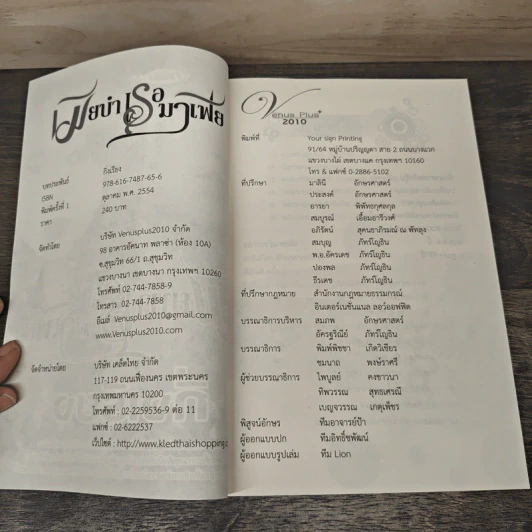 เมียบำเรอมาเฟีย
บทประพันธ์ กิ่งเรียง
ISBN 978-616-7487-65-6
พิมพ์ครั้งที่ 1 ตุลาคม พ.ศ. 2554
ราคา 240 บาท
จัดทำโดย บริษัท Venusplus2010 จำกัด
98 อาคารอัคนาท พลาซ่า (ห้อง 10A)
ซ.สุขุมวิท 66/1 ถ.สุขุมวิท
แขวงบางนา เขตบางนา กรุงเทพฯ 10260
โทรศัพท์ 02-744-7858-9
โทรสาร 02-744-7858
อีเมล์ Venusplus2010@gmail.com
www.Venusplus2010.com
จัดจำหน่ายโดย บริษัท เคล็ดไทย จำกัด
117-119 ถนนเฟื่องนคร เขตพระนคร
กรุงเทพมหานคร 10200
โทรศัพท์ : 02-2259536-9 ต่อ 11
แฟกซ์ : 02-6222537
เว็บไซต์ : http://www.kledthaishopping.c
Venus Plus+
2010
พิมพ์ที่ Your sign Printing
91/64 หมู่บ้านปริญญดา สาย 2 ถนนบางแวก
แขวงบางไผ่ เขตบางแค กรุงเทพฯ 10160
โทร & แฟกซ์ 0-2886-5102
ที่ปรึกษา มาลินี อักษรศาสตร์
ประสงค์ อักษรศาสตร์
อารยา พิพัทธกุศลกุล
สมบูรณ์ เอื้อมอารีวงศ์
อภิรัตน์ สุคนธาภิรมณ์ ณ พัทลุง
สมบุญ ภัทร์โญธิน
พ.อ.อัครเดช ภัทร์โญธิน
ปองพล ภัทร์โญธิน
ธีรเดช ภัทร์โญธิน
ที่ปรึกษากฎหมาย สำนักงานกฎหมายธรรมกรณ์
อินเตอร์เนชั่นแนล ลอว์ออฟฟิต
บรรณาธิการบริหาร สมภพ อักษรศาสตร์
อัครฐริณีย์ ภัทร์โญธิน
บรรณาธิการ พิมพ์พิชชา เกิดวิเชียร
ชมนาถ พงษ์ราศรี
ผู้ช่วยบรรณาธิการ ไพบูลย์ คงชาวนา
ทิพวรรณ สุทธเศรณี
เบญจวรรณ เกตุเพ็ชร
พิสูจน์อักษร ทีมอาจารย์ป้า
ผู้ออกแบบปก ทีมอิทธิ์ชพัฒน์
ผู้ออกแบบรูปเล่ม ทีม Lion